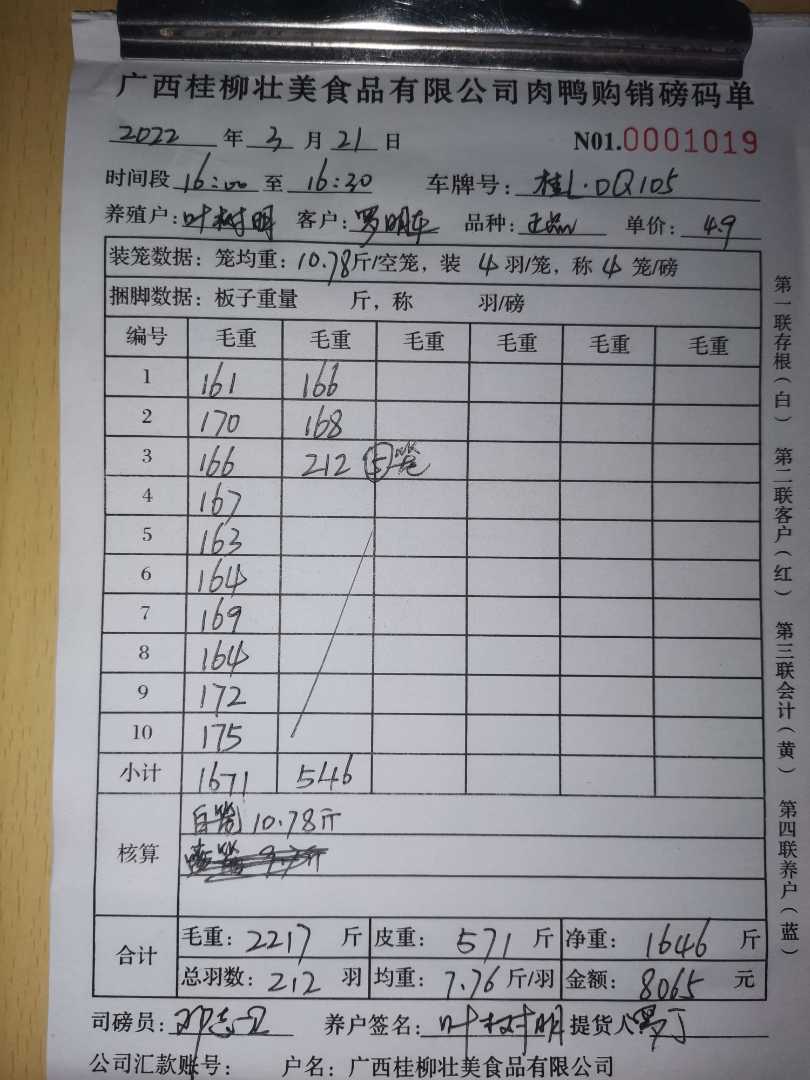 广西桂柳壮美食品有限公司肉鸭购销磅码单
2022 年 3 月 21 日 N01.0001019
时间段 16:00 至 16:30 车牌号: 桂L·DQ105
养殖户: 叶树明 客户: 罗明车 品种: 单价: 4.9
装笼数据: 笼均重: 10.78斤/空笼, 装 4 羽/笼, 称 4 笼/磅
捆脚数据: 板子重量 斤, 称 羽/磅
编号 毛重 毛重 毛重 毛重 毛重 毛重
1 161 166
2 170 168
3 166 212 ⑤笼
4 167
5 163
6 164
7 169
8 164
9 172
10 175
小计 1671 546
核算 白笼 10.78斤
合计 毛重: 2217 斤 皮重: 571 斤 净重: 1646 斤
总羽数: 212 羽 均重: 7.76 斤/羽 金额: 8065 元
司磅员: 养户签名: 叶树明 提货人
公司汇款账号: 户名: 广西桂柳壮美食品有限公司
第一联存根(白) 第二联客户(红) 第三联会计(黄) 第四联养户(蓝)